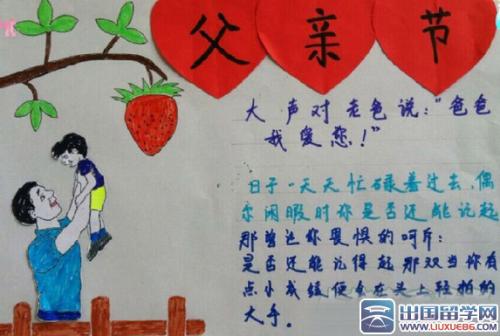 父亲节
大声对老爸说:"爸爸
我爱您!"
日子一天天忙碌着过去,偶
尔闲暇时你是否还能记起
那曾让你畏惧的呵斥;
是否还能记得起那双当你有
点小成绩便会在头上轻拍的
大手。
出国留学网
www.liuxue86.com